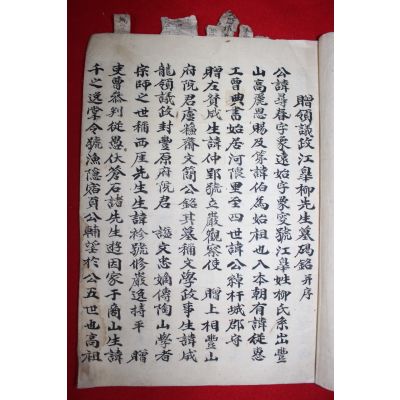 贈領議政江皐柳先生墓碣銘 并序
公諱尋春字象遠始字象叟號江皐姓柳氏系出豐
山高麗恩賜及第諱伯為始祖也入本朝有諱從惠
工曹典書始居河隈里至四世諱公綽杆城郡守
贈左賛成生諱仲郢號立嚴觀察使 贈上相豐山
府院君 蘇齋文簡公銘其墓稱文學政事生諱成
龍領議政封豐原府院君 諡文忠嫡傳陶山學者
宗師之世稱西厓先生生諱袗號修嚴逸持平 贈
吏曹參判從愚伏蒼石諸先生遊因家于商山生諱
千之逸掌令號漁隱 公輔望於公五世也高祖